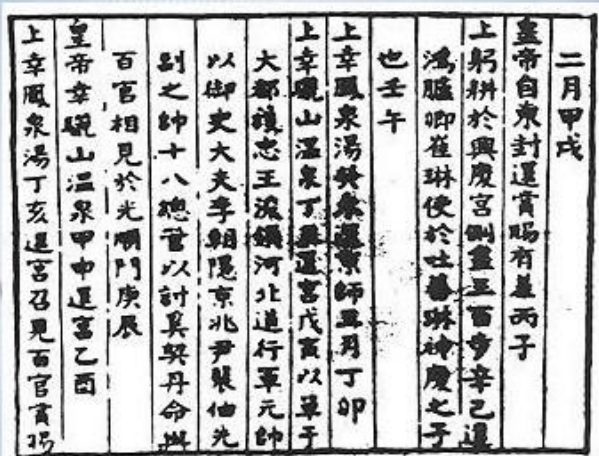 二月甲戌
皇帝自東封還賞賜有差丙子
上躬耕於興慶宮側盡三百步辛己遣
鴻臚卿崔琳使於吐蕃琳神慶之子
也壬午
上幸鳳泉湯癸未還京師月丁卯
上幸驪山溫泉丁丑還宮戊寅以單于
大都護忠王浚領河北道行軍元帥
以御史大夫李朝隱京兆尹裴伷先
副之帥十八總管以討奚契丹命與
百官相見於光順門庚辰
皇帝幸驪山溫泉甲申還宮乙酉
上幸鳳泉湯丁亥還宮召見百官賞賜